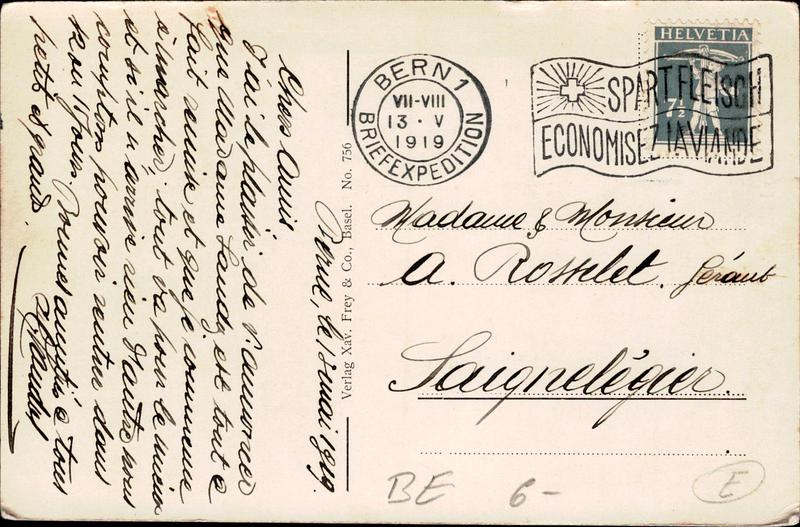 Berne, le 13 mai 1919.
Chers Amis
J'ai le plaisir de vous annoncer
que Madame Landry est tout à
fait remise et que je commence
à marcher. tout va pour le mieux
et s'il n'arrive rien d'autre nous
comptons pouvoir rentrer dans
8 ou 15 jours. Bonnes amitiés à tous
petit et grand.
Verlag Xav. Frey & Co., Basel. No. 756
BERN 1
VII-VIII
13 · V
1919
BRIEFEXPEDITION
HELVETIA
7½
SPART FLEISCH
ECONOMISEZ LA VIANDE
Madame & Monsieur
A. Rosselet. Gérant
Saignelégier.
BE 6-
E